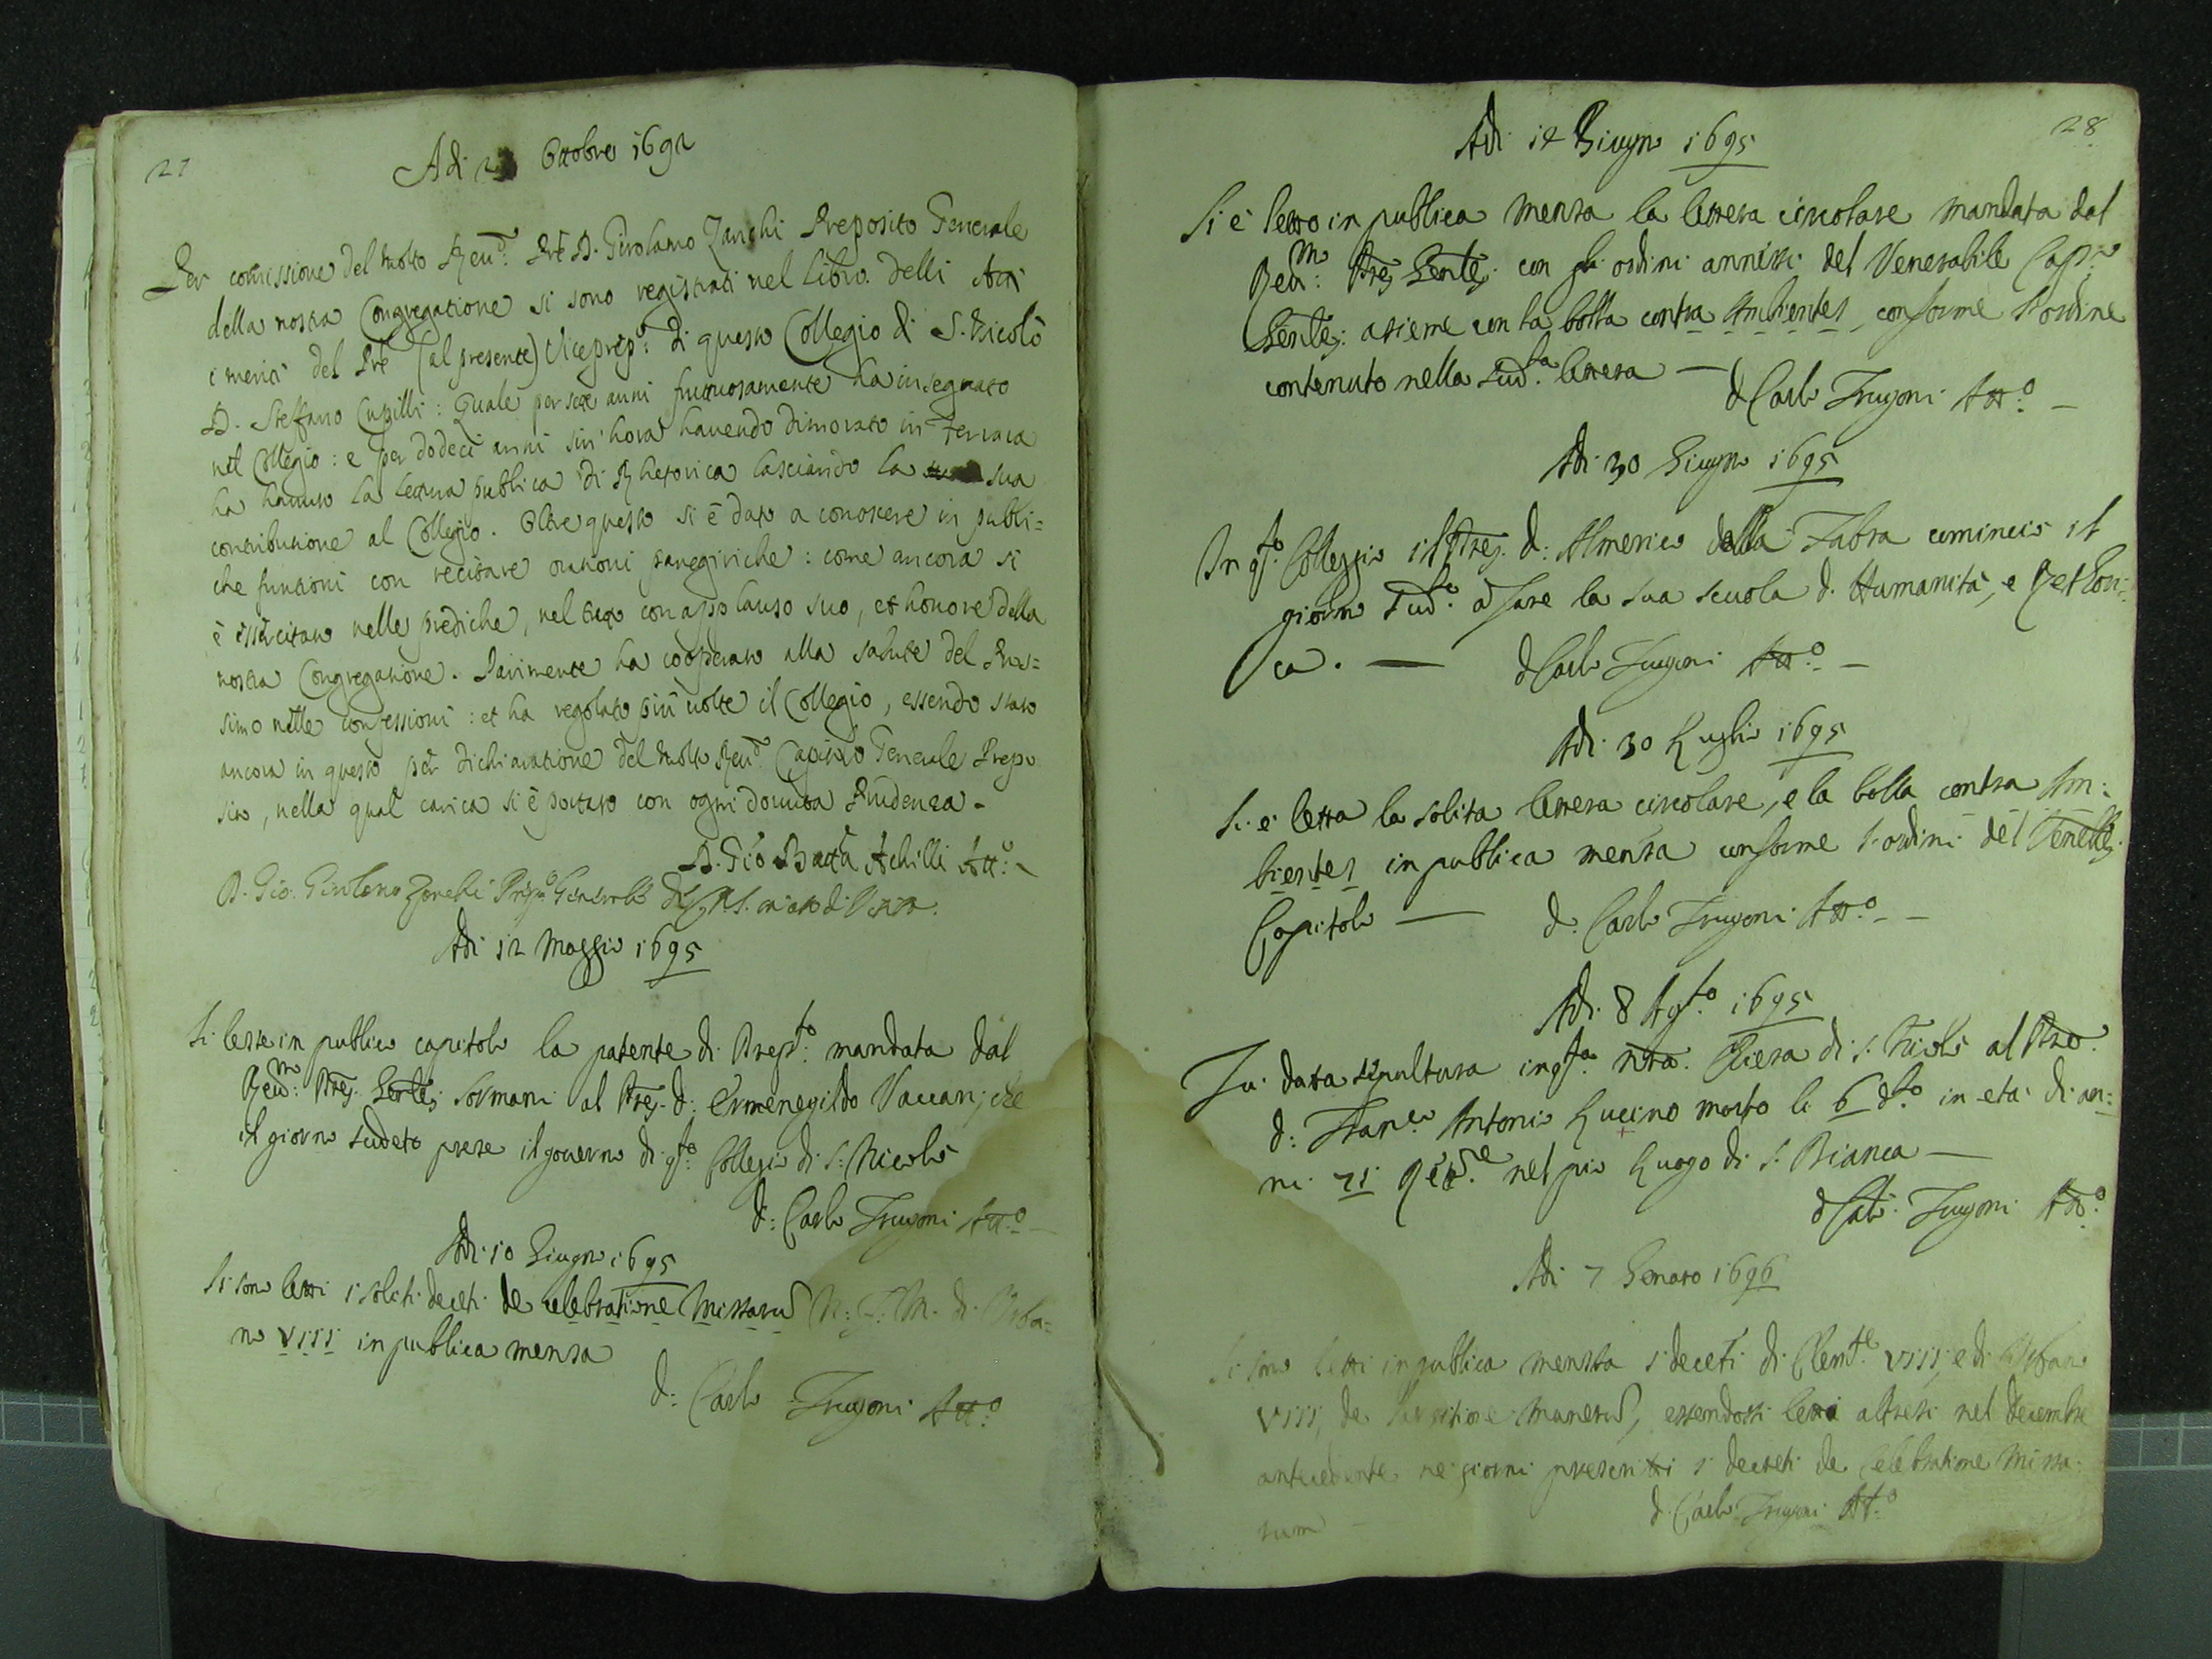 27
Adi 2 Ottobre 1692
Per comissione del molto Reu.do Pre D. Girolamo Zanchi Preposito Generale
della nostra Congregatione si sono registrati nel libro delli Atti
i meriti del Pre (al presente) Viceprep.o di questo Collegio di S. Nicolò
D. Steffano Cupilli: Quale per sette anni fruttuosamente ha insegnato
nel Collegio: e per dodeci anni sin'hora hauendo dimorato in Ferrara
ha hauuto la lettura publica di Rhetorica lasciando la sua
contributione al Collegio. Oltre questo si è dato a conoscere in publi=
che funtioni con recitare orationi panegiriche: come ancora si
è essercitato nelle prediche, nel con applauso suo, et honore della
nostra Congregatione. Parimente ha cooperato alla salute del Pros=
simo nelle confessioni: et ha regolato più uolte il Collegio, essendo stato
ancora in questo per dichiaratione del molto Reu.do Capitolo Generale Prepo
sito, nella qual carica si è portato con ogni douuta Prudenza.
D. Gio Batta Achilli Att.o
D. Gio. Girolamo Zanchi Prep.o Generale in atto di Visita.
Adi 12 Maggio 1695
Si lesse in publico capitolo la patente di Prep.to mandata dal
Reu.mo Pre Gente Sormani al Pre d: Ermenegildo Vaccari, che
il giorno sudeto prese il gouerno di q.to Collegio di S: Nicolò
d: Carlo Frugoni Att.o
Adi 10 Giugno 1695
Si sono letti i soliti decreti de celebratione Missarū N: F: M. di Urba=
no VIII in publica mensa
d: Carlo Frugoni Att.o
28
Adi 12 Giugno 1695
Si è letto in publica mensa la lettera circolare mandata dal
Reu.mo Pre Gente con gli ordini annessi del Venerabile Cap.o
Gente: assieme con la bolla contra Ambientes, conforme l'ordine
contenuto nella sud.ta lettera —
d Carlo Frugoni Att.o —
Adi 30 Giugno 1695
In q.to Colleggio il Pre d: Almerico della Fabra cominciò il
giorno sud.to a fare la sua scuola d. Humanità, e Rettori=
ca. — d Carlo Frugoni Att.o —
Adi 30 Luglio 1695
Si è letta la solita lettera circolare, e la bolla contra Am=
bientes in publica mensa conforme l'ordini del Venelle
Capitolo — d. Carlo Frugoni Att.o —
Adi 8 Ag.to 1695
Fu data sepultura in q.ta nra Chiesa di S. Nicolò al Pre
d: Fran.co Antonio Lucino morto li 6 d.to in età di an=
ni 71 nel pio Luogo di S. Bianca —
d Carlo Frugoni Att.o
Adi 7 Genaro 1696
Si sono letti in publica mensa i decreti di Clem.te VIII, e di Urbano
VIII, de largitione munerū, essendosi letti altresi nel decembre
antecedente ne giorni prescritti i decreti de celebratione Missa
rum —
d. Carlo Frugoni Att.o